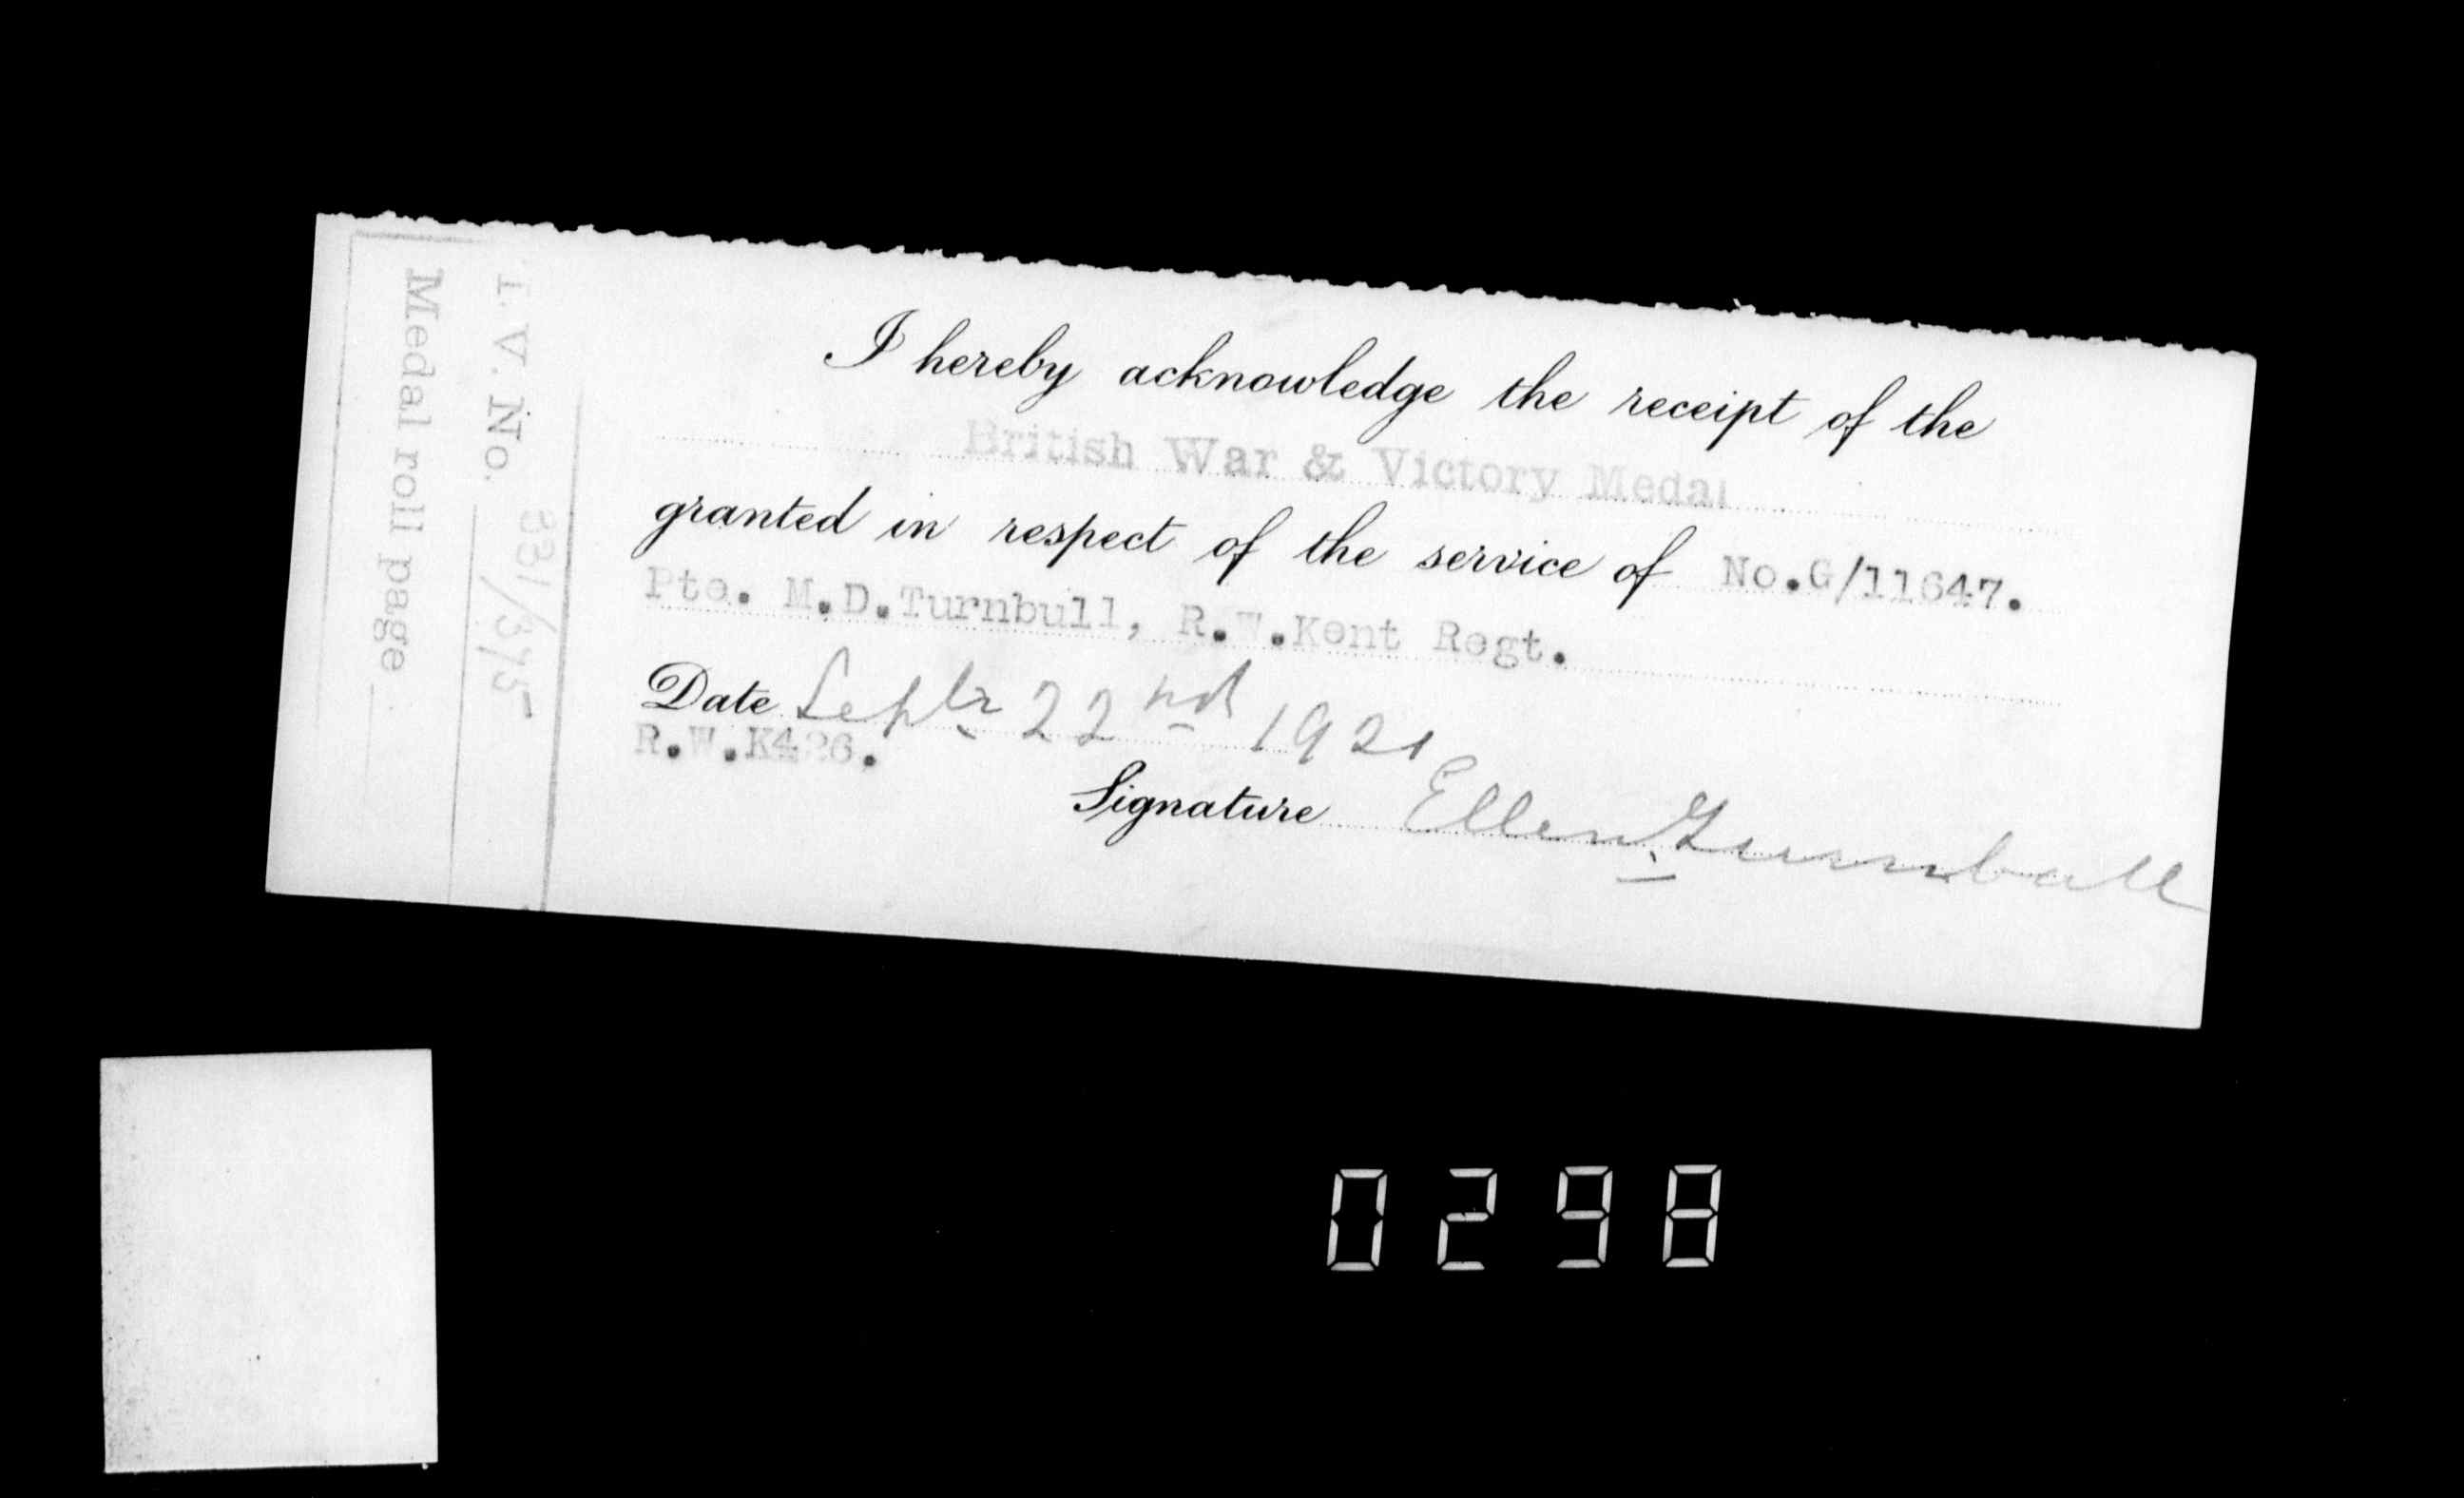 I hereby acknowledge the receipt of the
British War & Victory Medal
granted in respect of the service of No.G/11647.
Pte. M.D.Turnbull, R.W.Kent Regt.
Date Septr 22nd 1921
R.W.K426.
Signature Ellen Turnbull
I.V. No. 331/375
Medal roll page
0298